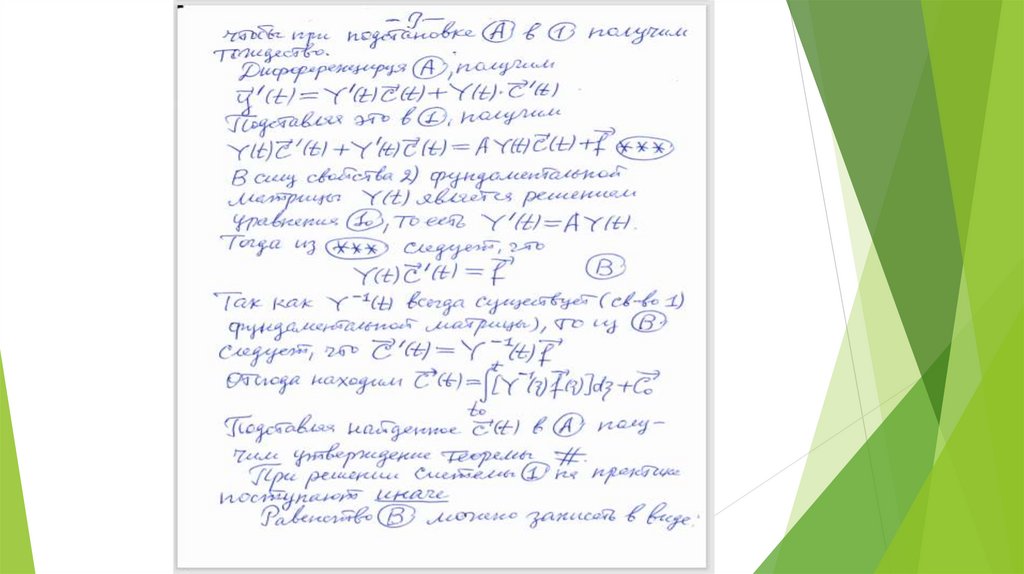 – 7 –
чтобы при подстановке (A) в (1) получим
тождество.
Дифференцируя (A), получим
y⃗'(t) = Y'(t) c⃗(t) + Y(t)·c⃗'(t)
Подставляя это в (1), получим
Y(t) c⃗'(t) + Y'(t) c⃗(t) = A Y(t) c⃗(t) + f⃗ (***)
В силу свойства 2) фундаментальной
матрицы Y(t) является решением
уравнения (1₀), то есть Y'(t) = A Y(t).
Тогда из (***) следует, что
Y(t) c⃗'(t) = f⃗ (B)
Так как Y⁻¹(t) всегда существует (св-во 1)
фундаментальной матрицы), то из (B)
следует, что c⃗'(t) = Y⁻¹(t) f⃗
Отсюда находим c⃗(t) = ∫ₜ₀ᵗ [Y⁻¹(z) f⃗(z)]dz + c⃗₀
Подставляя найденное c⃗(t) в (A) полу-
чим утверждение теоремы #.
При решении системы (1) на практике
поступают иначе
Равенство (B) можно записать в виде: